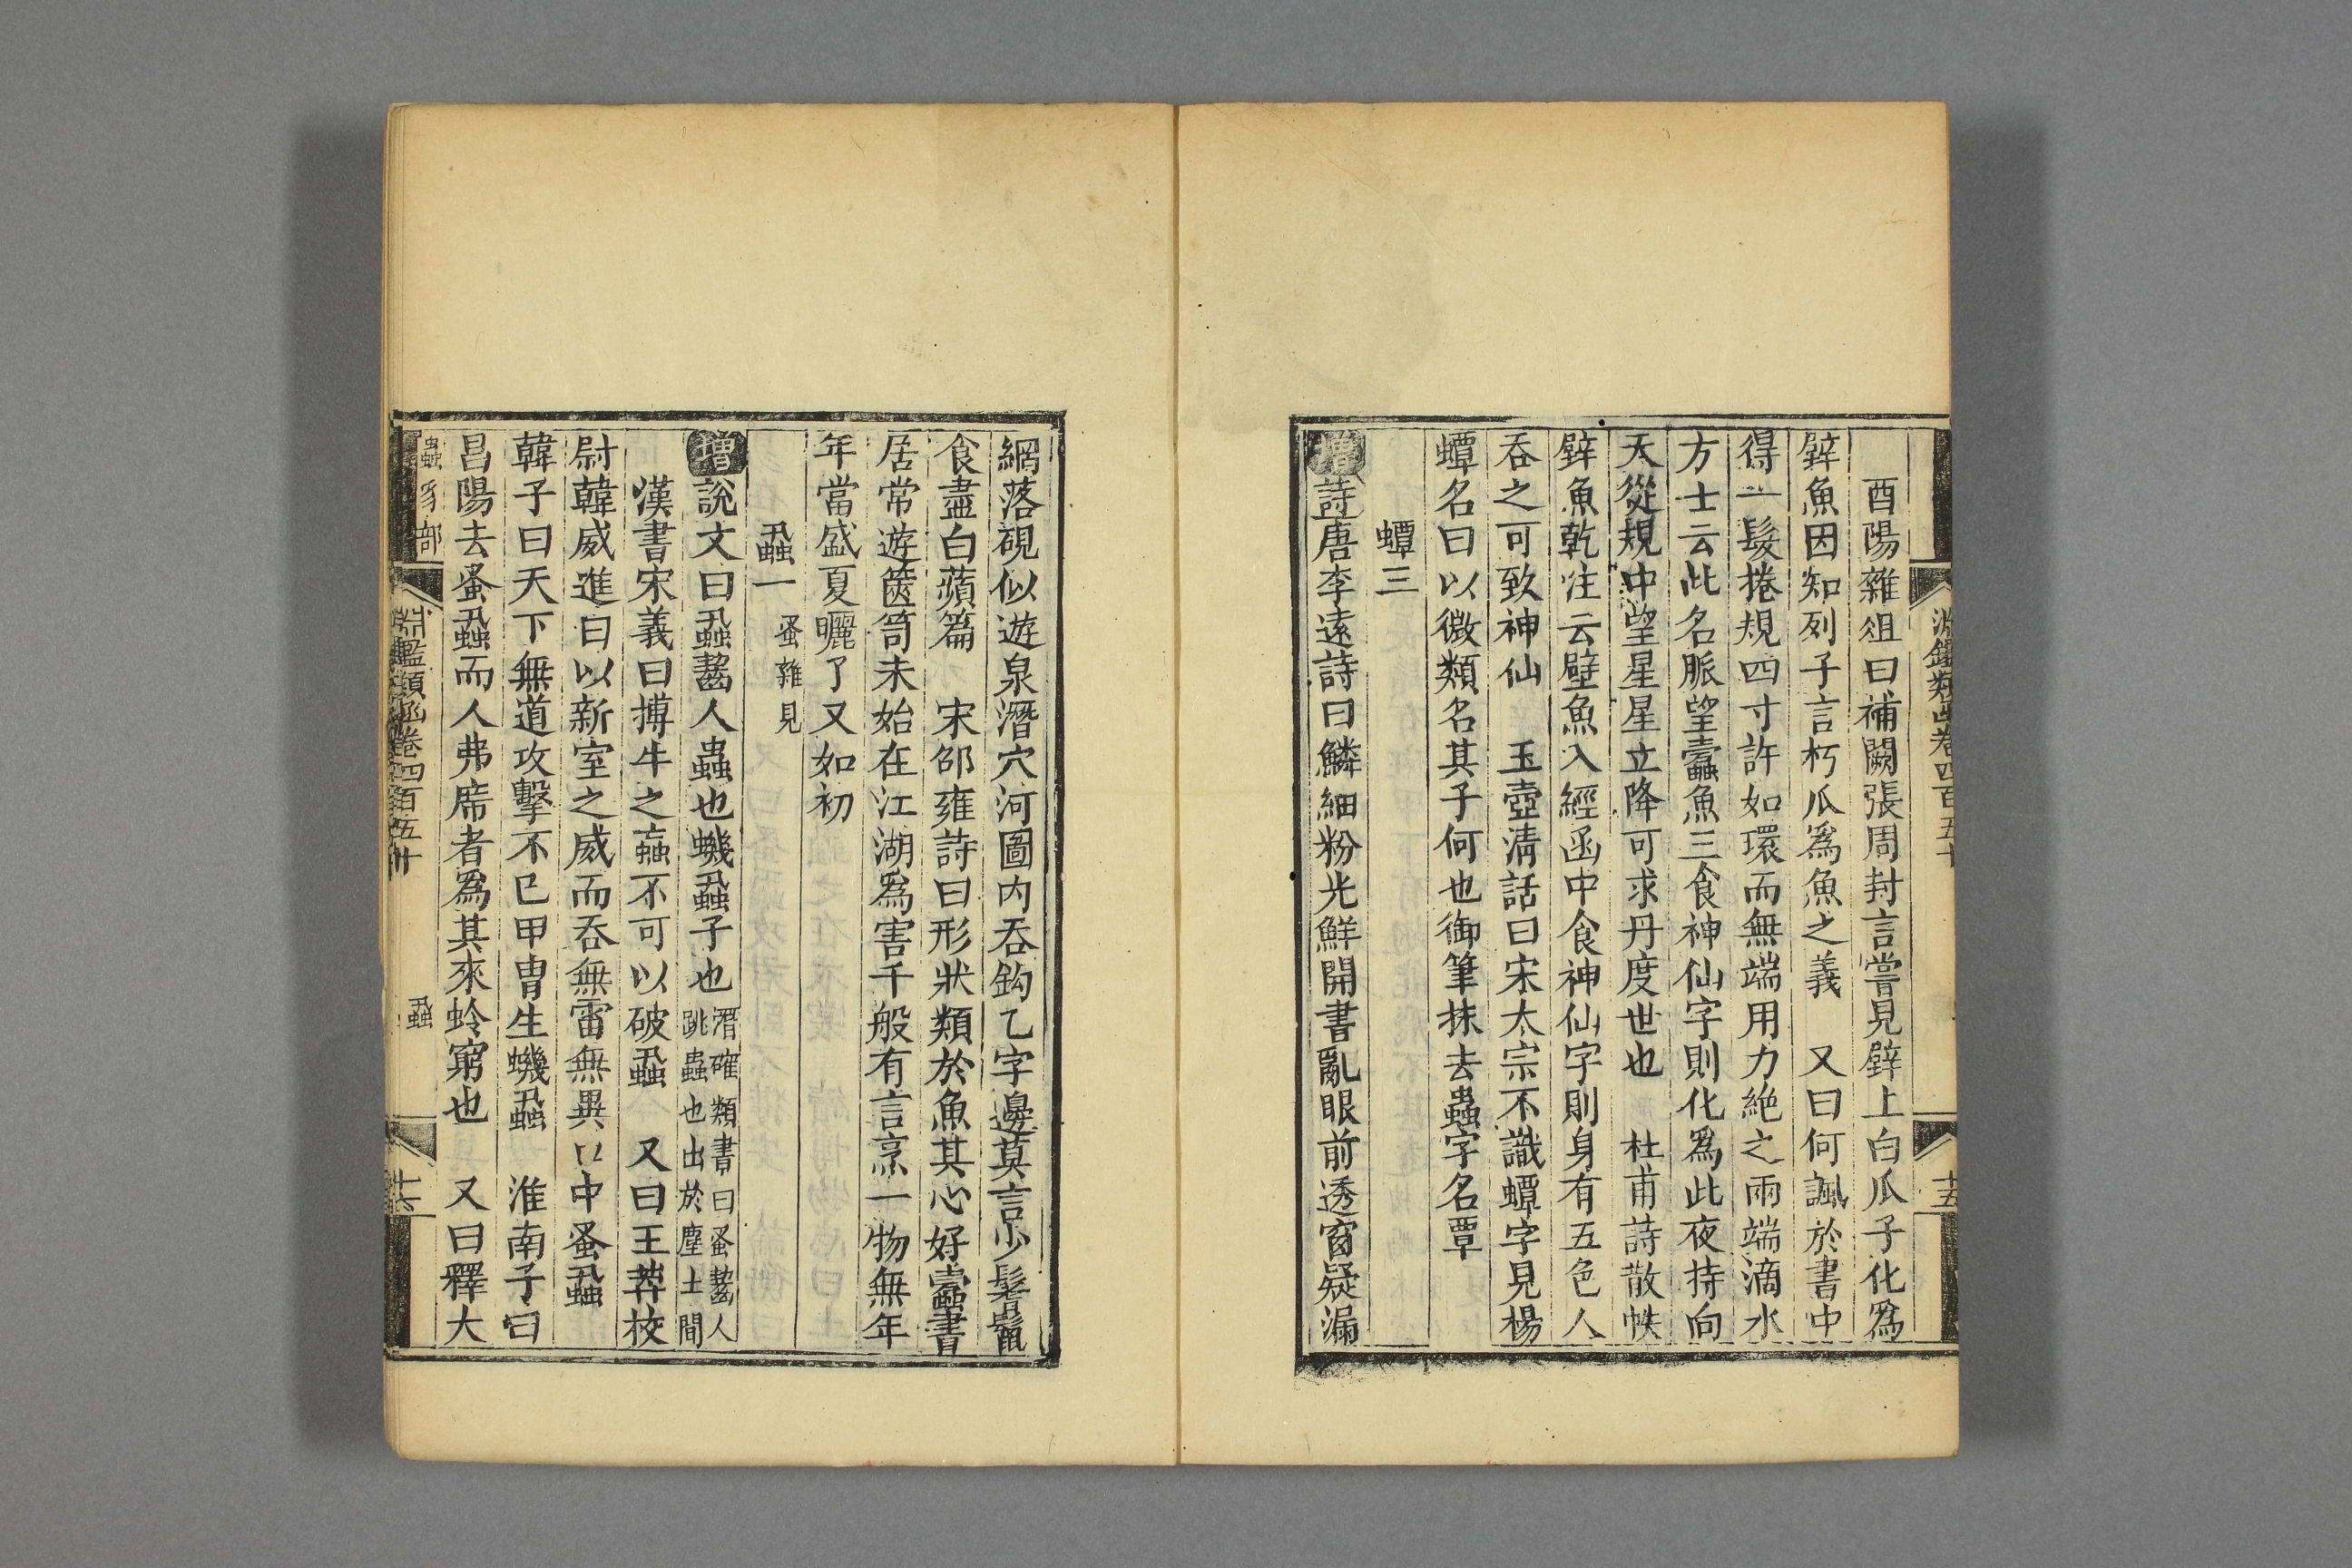 淵鑑類函卷四百五十
十五
酉陽雜俎曰補闕張周封言嘗見壁上白瓜子化爲
壁魚因知列子言朽瓜爲魚之義　又曰何諷於書中
得一髮捲規四寸許如環而無端用力絶之兩端滴水
方士云此名脈望蠹魚三食神仙字則化爲此夜持向
天從規中望星星立降可求丹度世也　杜甫詩散帙
壁魚乾注云壁魚入經函中食神仙字則身有五色人
吞之可致神仙　玉壺淸話曰宋太宗不識蟫字見楊
蟫名曰以微類名其子何也御筆抹去蟲字名覃
蟫三
增詩唐李遠詩曰鱗細粉光鮮開書亂眼前透窗疑漏
網落硯似遊泉潛穴河圖内吞鈎乙字邊莫言少鬐鬣
食盡白蘋篇　宋邵雍詩曰形狀類於魚其心好蠹書
居常遊篋笥未始在江湖爲害千般有言烹一物無年
年當盛夏曬了又如初
蝨一蚤雜見
增說文曰蝨齧人蟲也蟣蝨子也潛確類書曰蚤齧人
跳蟲也出於塵土間
漢書宋義曰搏牛之蝱不可以破蝨　又曰王莽校
尉韓威進曰以新室之威而吞無雷無異口中蚤蝨
韓子曰天下無道攻擊不已甲胄生蟣蝨　淮南子曰
昌陽去蚤蝨而人弗席者爲其來蛉窮也　又曰釋大
蟲豸部
淵鑑類函卷四百五十
蝨
十六